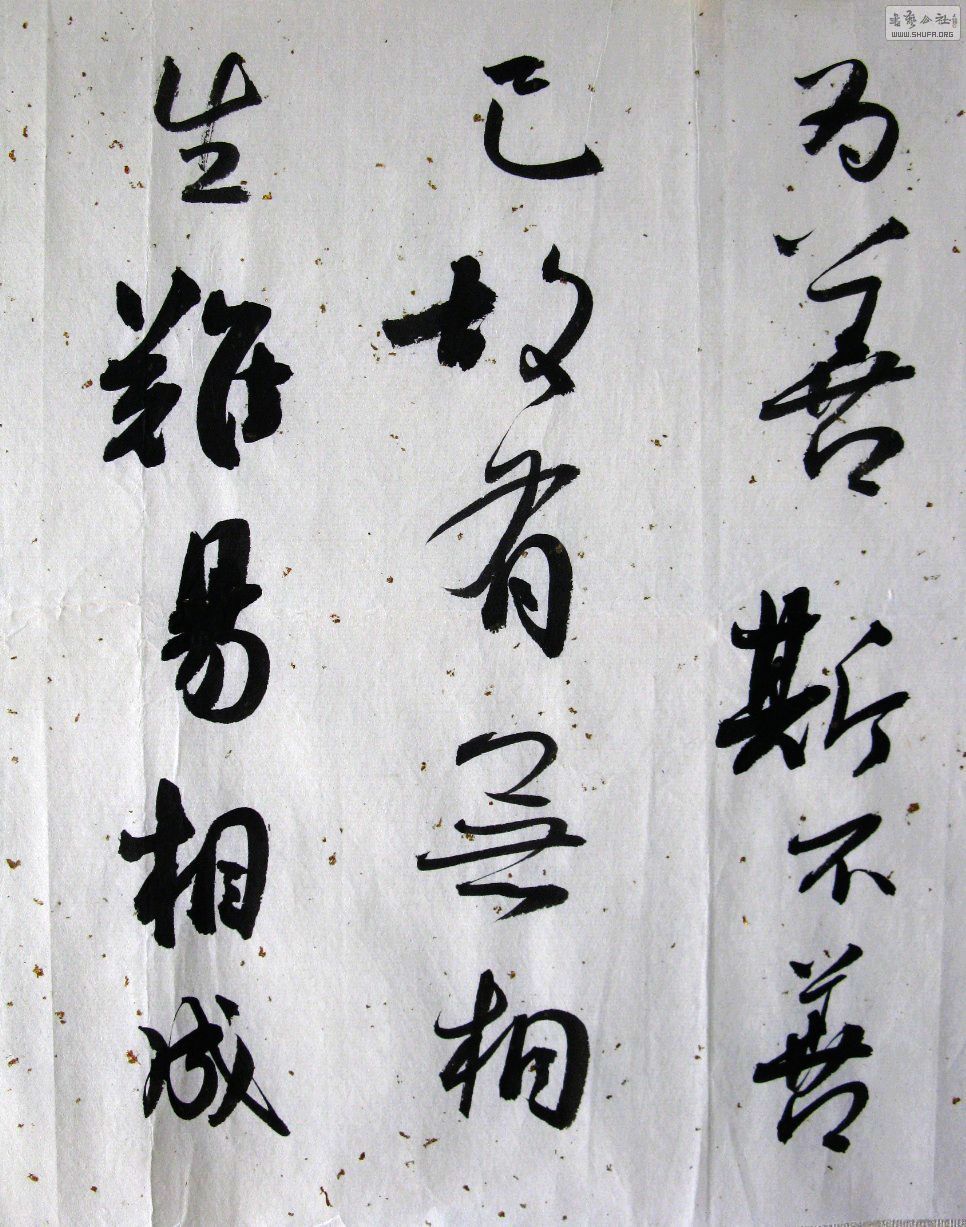 为善斯不善
已故有無相
生難易相成
書藝公社
WWW.SHUFA.ORG